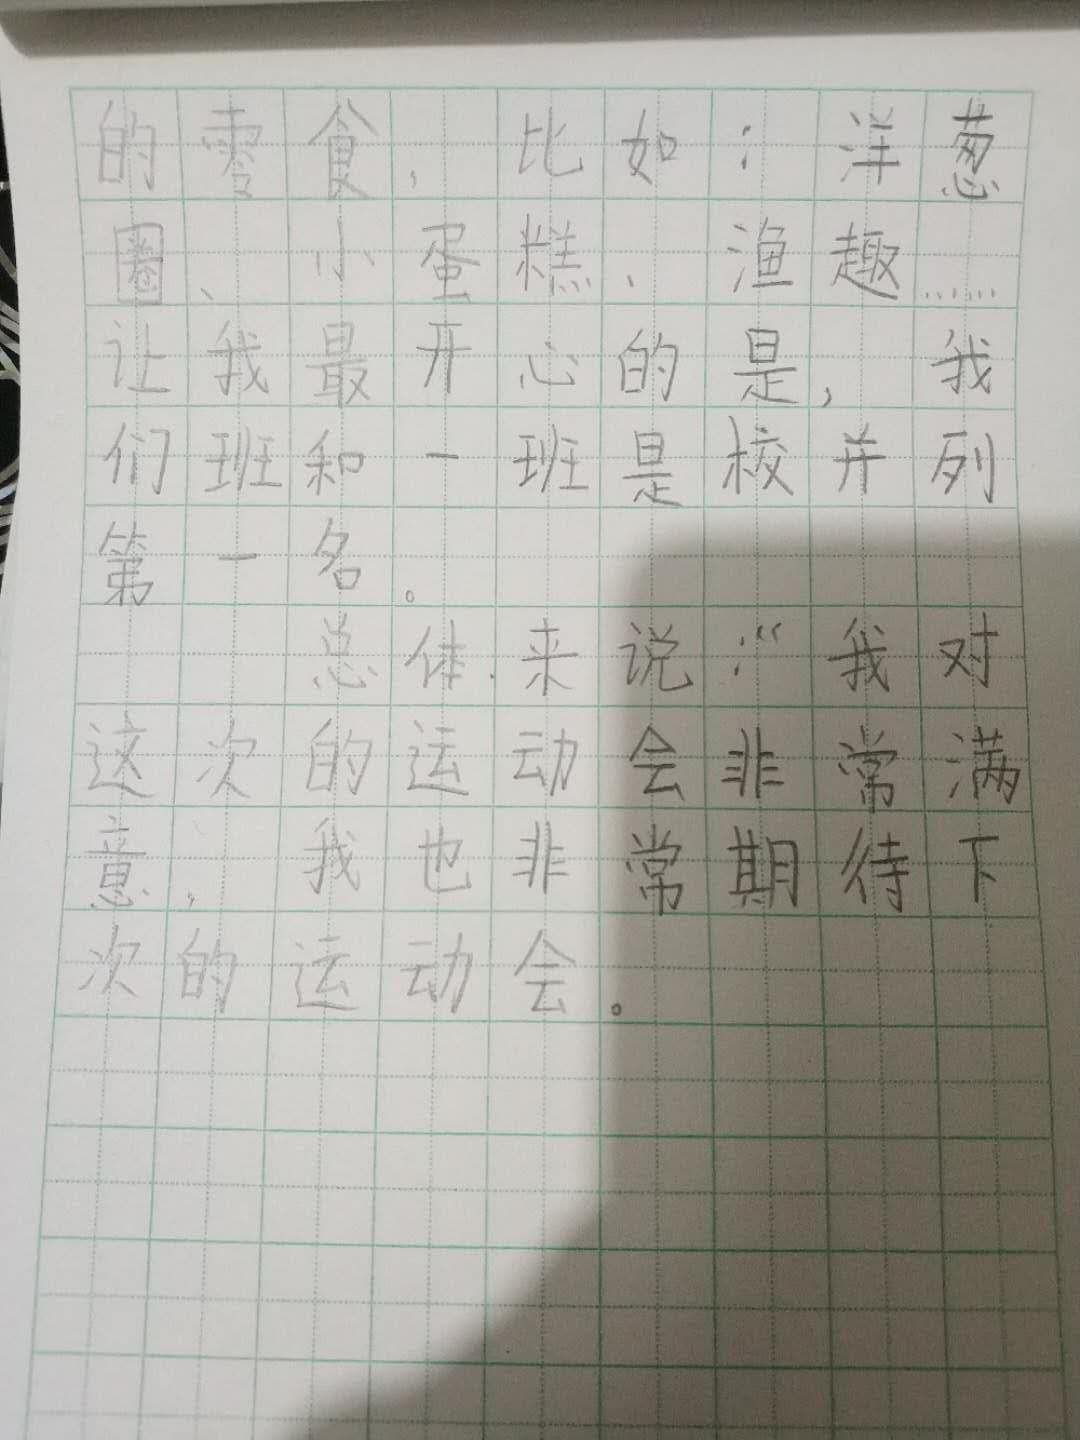 的零食，比如：洋葱
圈、小蛋糕、渔趣……
让我最开心的是，我
们班和一班是校并列
第一名。
总体来说：“我对
这次的运动会非常满
意，我也非常期待下
次的运动会。